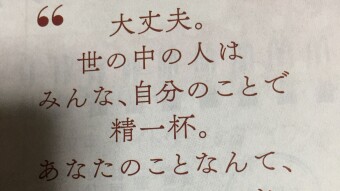 ❝
大丈夫。
世の中の人は
みんな、自分のことで
精一杯。
あなたのことなんて、